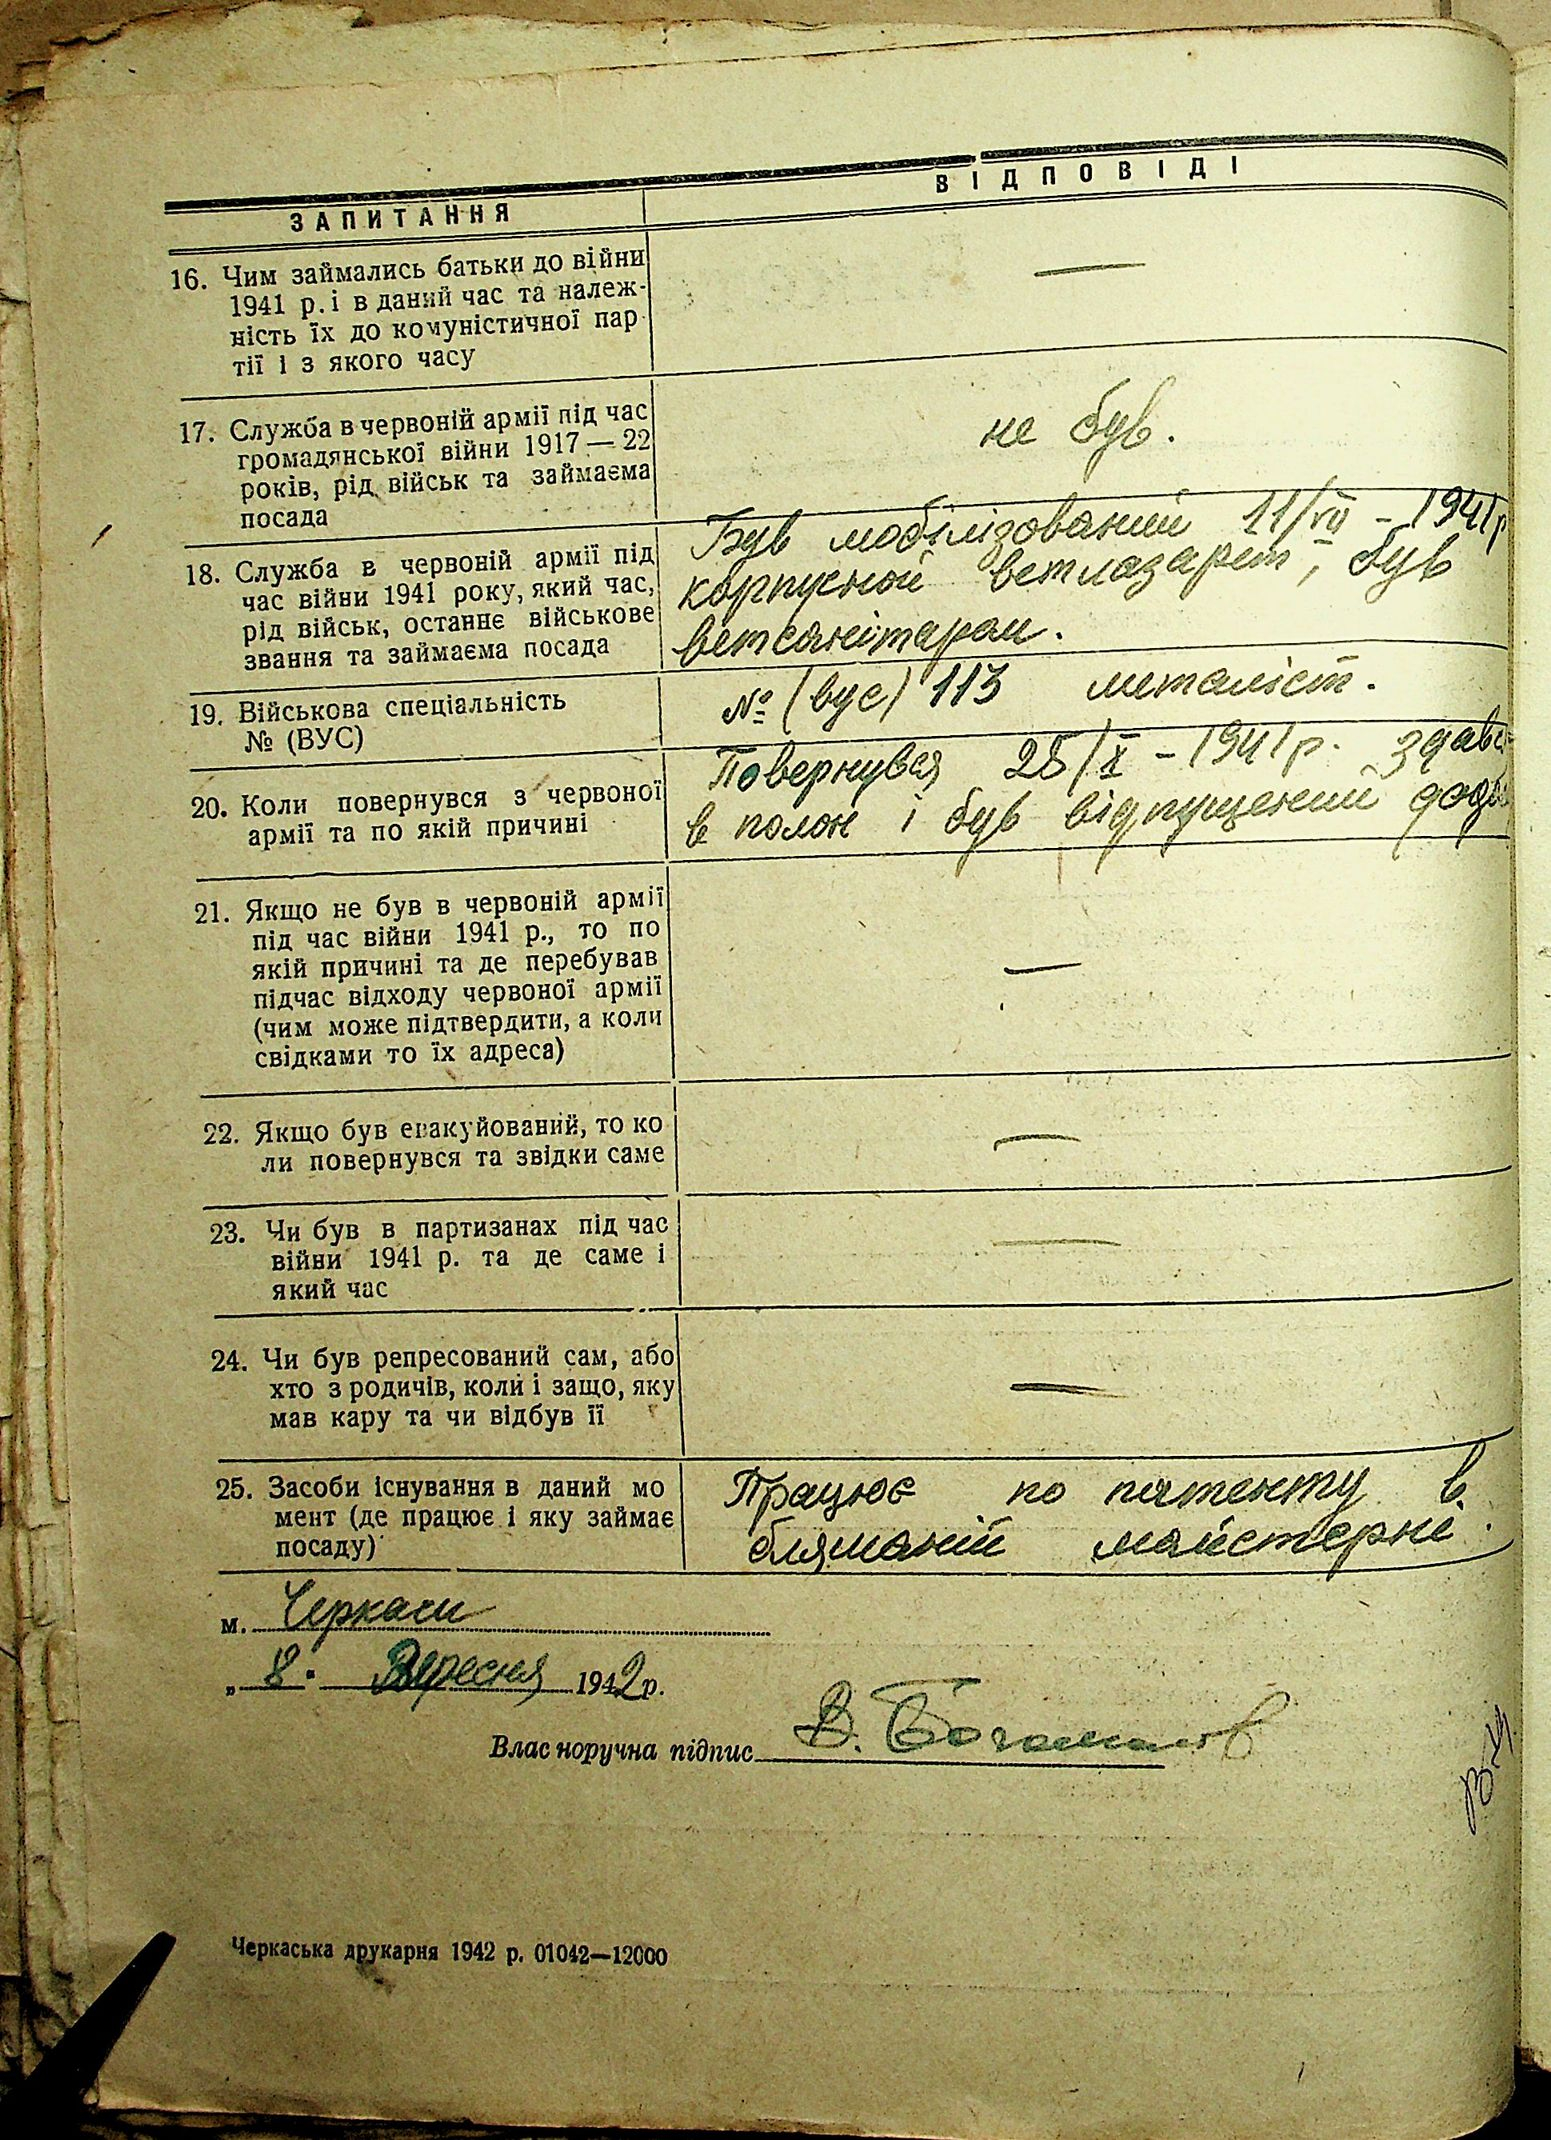 ЗАПИТАННЯ
ВІДПОВІДІ
16. Чим займались батьки до війни
1941 р. і в даний час та належ-
ність їх до комуністичної пар-
тії і з якого часу
—
17. Служба в червоній армії під час
громадянської війни 1917—22
років, рід військ та займаєма
посада
не був.
18. Служба в червоній армії під
час війни 1941 року, який час,
рід військ, останнє військове
звання та займаєма посада
Був мобілізований 11/VII – 1941р
корпусной ветлазарет, був
ветсанітаром.
19. Військова спеціальність
№ (ВУС)
№ (вус) 113 металіст.
20. Коли повернувся з червоної
армії та по якій причині
Повернувся 28/X – 1941р. здавс
в полон і був відпущений
21. Якщо не був в червоній армії
під час війни 1941 р., то по
якій причині та де перебував
підчас відходу червоної армії
(чим може підтвердити, а коли
свідками то їх адреса)
—
22. Якщо був евакуйований, то ко
ли повернувся та звідки саме
—
23. Чи був в партизанах під час
війни 1941 р. та де саме і
який час
—
24. Чи був репресований сам, або
хто з родичів, коли і защо, яку
мав кару та чи відбув її
—
25. Засоби існування в даний мо
мент (де працює і яку займає
посаду)
Працює по патенту в
бляшаній майстерні.
м. Черкаси
„ 8. Вересня 1942 р.
Влас норучна підпис В.
Черкаська друкарня 1942 р. 01042—12000